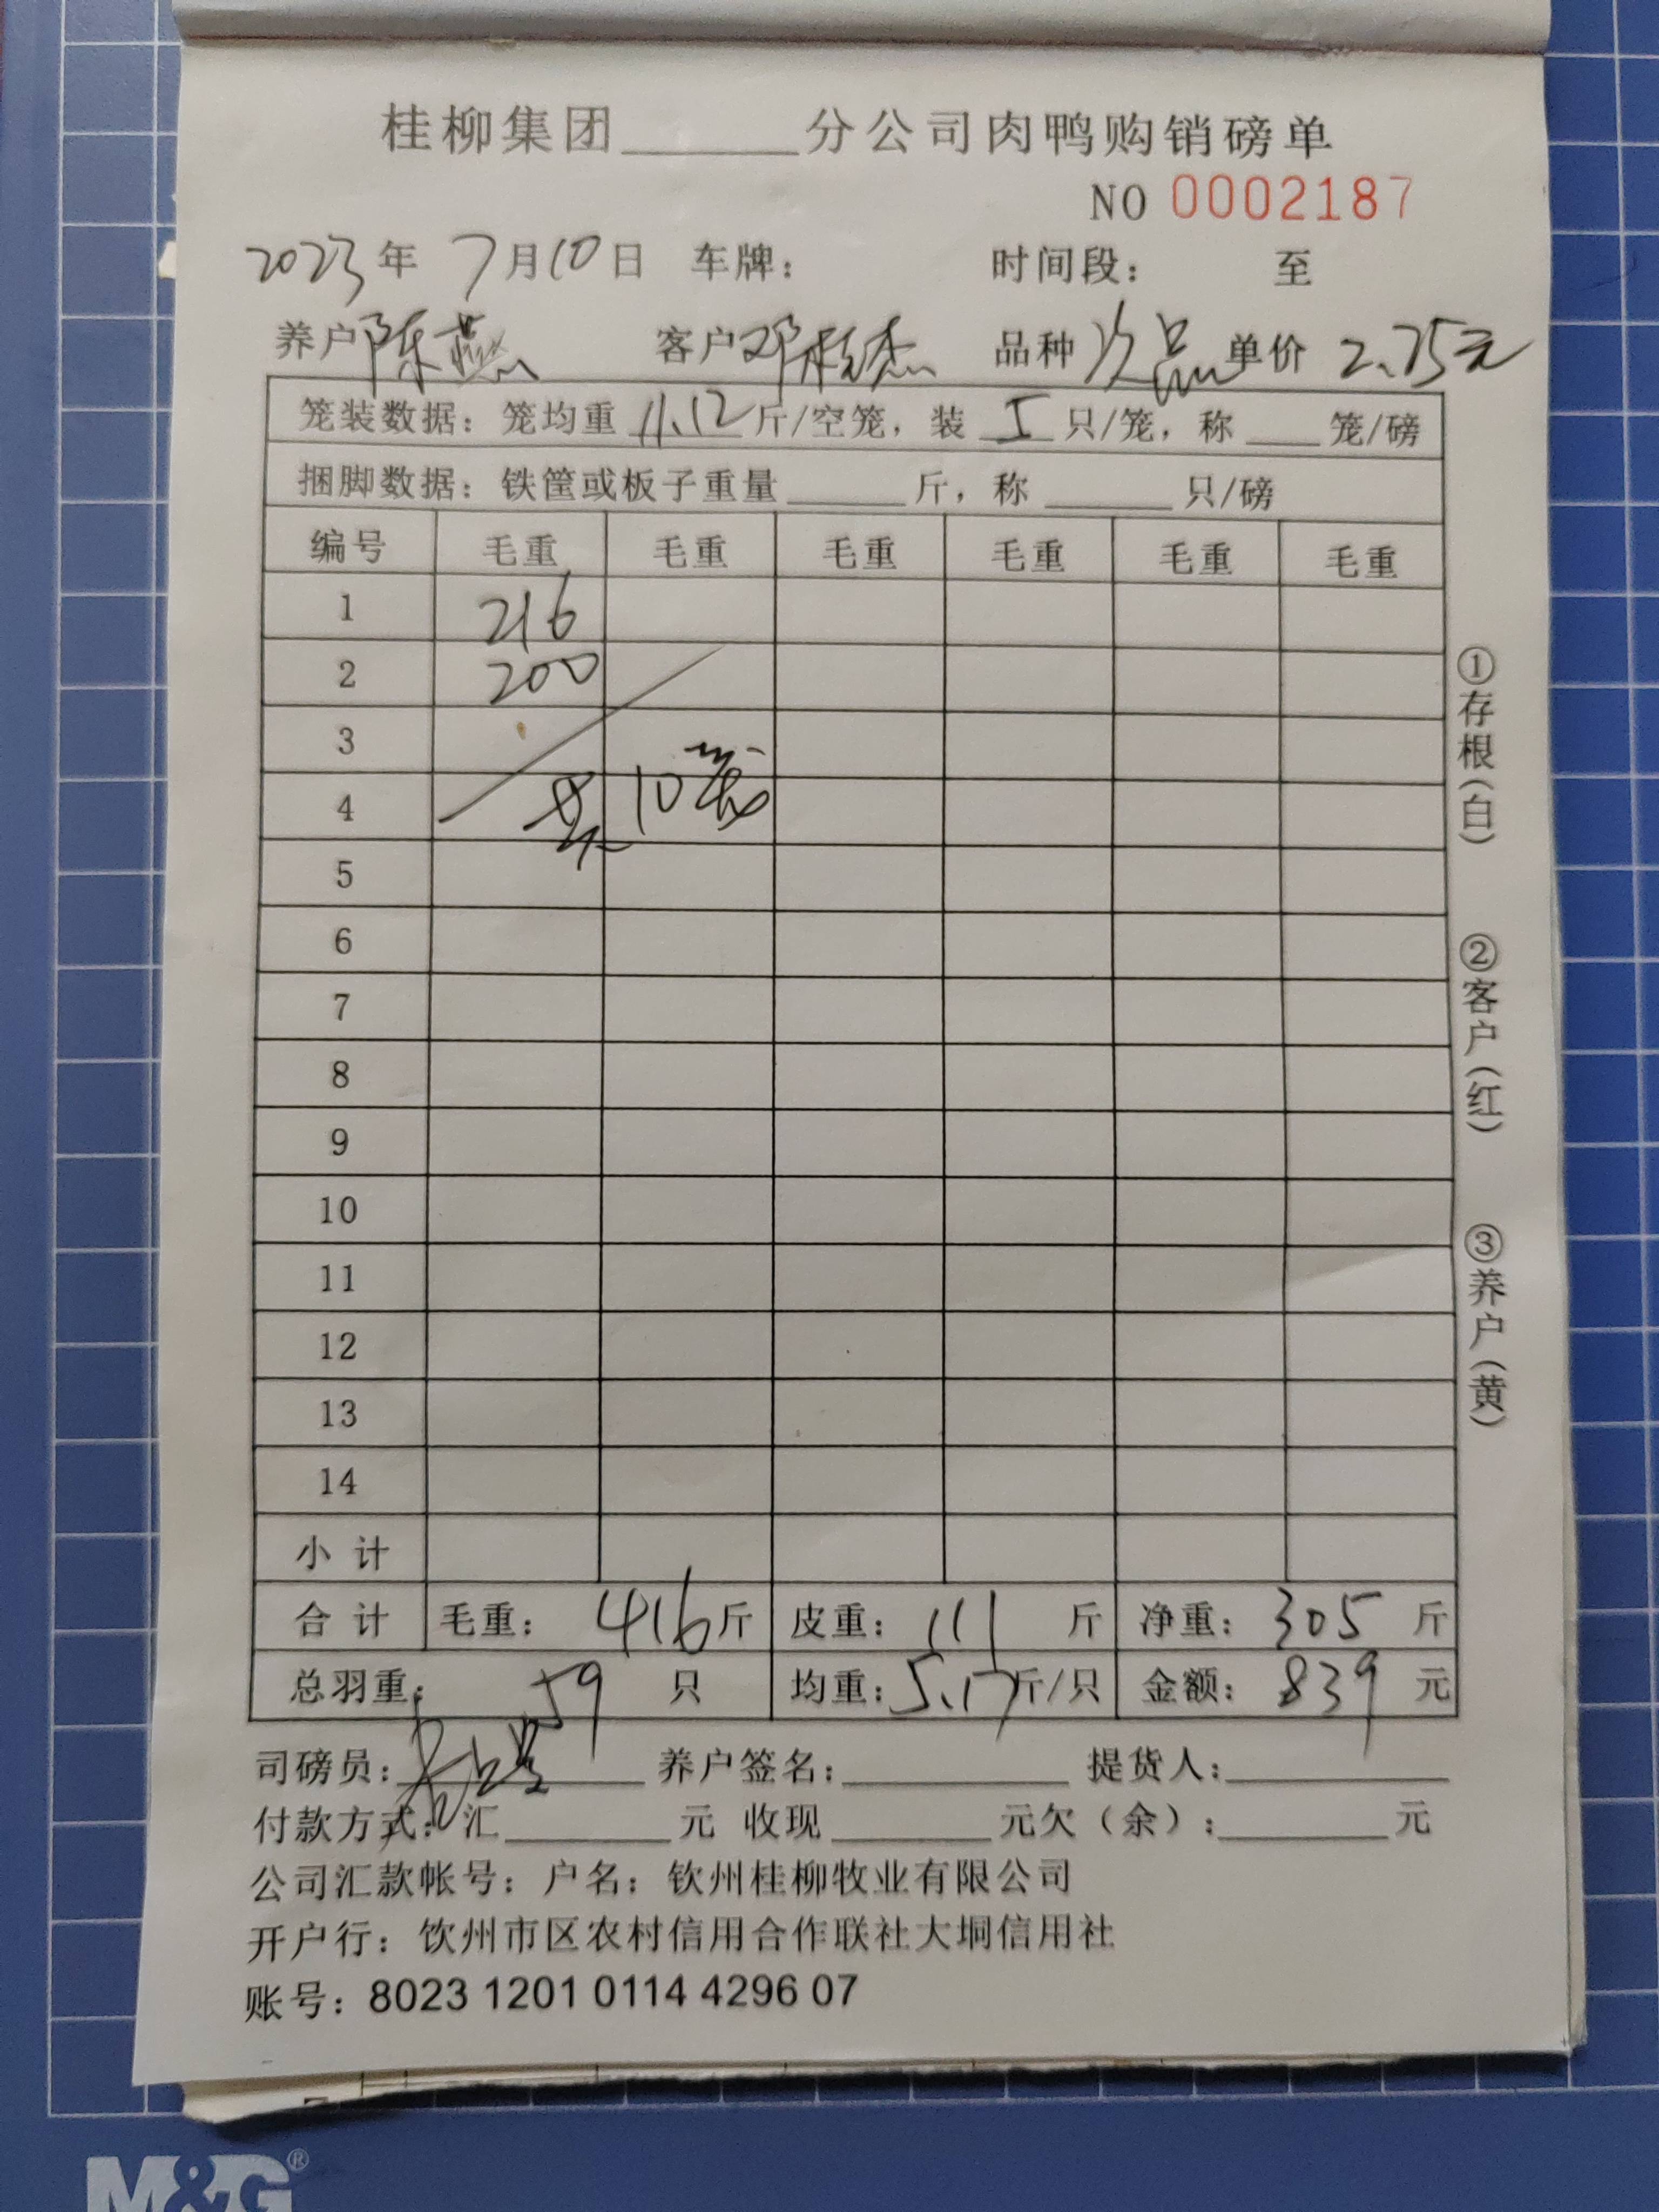 桂柳集团______分公司肉鸭购销磅单
NO 0002187
2023年 7月10日 车牌： 时间段： 至
养户 陈燕 客户 邓 杰 品种 次品 单价 2.75元
笼装数据：笼均重 11.12 斤/空笼，装 5 只/笼，称 ___ 笼/磅
捆脚数据：铁筐或板子重量______斤，称______只/磅
编号 毛重 毛重 毛重 毛重 毛重 毛重
1 216
2 200
3
4 共 10笼
5
6
7
8
9
10
11
12
13
14
小 计
合 计 毛重： 416 斤 皮重： 111 斤 净重： 305 斤
总羽重： 59 只 均重： 5.17 斤/只 金额： 839 元
司磅员： 养户签名：______ 提货人：______
付款方式：汇______元 收现______元欠（余）：______元
公司汇款帐号：户名：钦州桂柳牧业有限公司
开户行：饮州市区农村信用合作联社大垌信用社
账号：8023 1201 0114 4296 07
①存根（白）
②客户（红）
③养户（黄）
M&G®